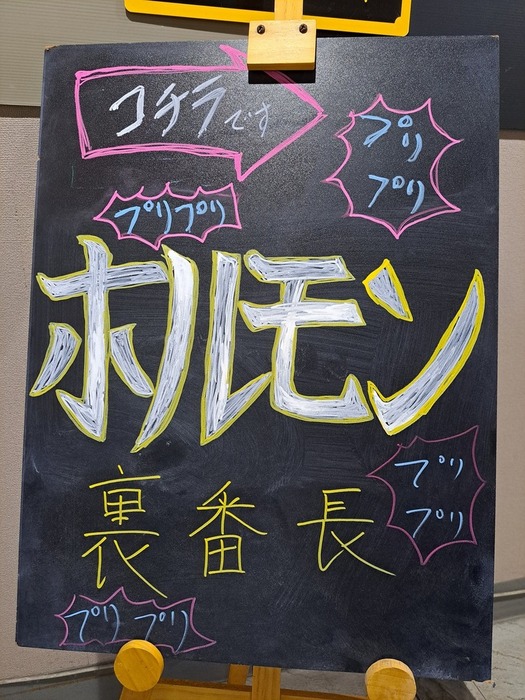 コチラです
プリ
プリ
プリプリ
ホルモン
プリ
プリ
裏番長
プリプリ